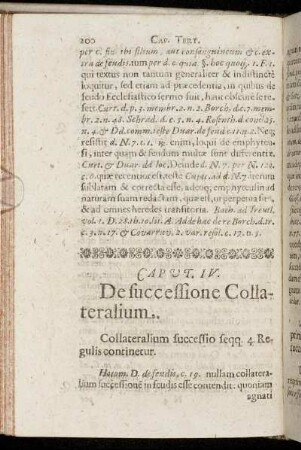 200 CAP. TERT.
per c. fin. ibi filium, aut consanguineum & c. ex-
tra de feudis num per d. c. quia §. hoc quoq; 1. F. 1.
qui textus non tantum generaliter & indistincte
loquitur, sed etiam ad præcedentia, in quibus de
feudo Ecclesiastico sermo fuit, hauc obscure se re-
fert. Curt. d. p. 3. 2. Borch. d. c. 7. mem-
br. 2. n. 48. Schrad. d. c. 3. n. 4. Rosenth. d. concl. 25.
n. 4. & Dd. comm. teste Duar. de feud. c. 11. n. 2. Neq;
resistit d. N. 7. c. 1. eniti, loqui de emphyteu-
si, inter quam & feudum multæ sunt differentiæ.
Curt. & Duar. dd. loc. Deinde d. N. 7. per N. 124.
c. 9. quæ recentior est, teste Cujac. ad d. N. 7. iterum
sublatam & correcta esse, adeoq; emphyteusin ad
naturam suam redactam, quæ est, ut perpetua sit,
& ad omnes heredes transitoria. Bach. ad Treutl.
vol. 1. D. 28. th. 10. lit. B. Andr. de re Borc. d. tr.
c. 3. n. 17. & Covarruv. 2. var. resol. c. 17. n. 5.
CAPUT. IV.
De successione Colla-
teralium.
Collateralium successio seqq. 4. Re-
gulis continetur.
Hotom. D. de feudis, c. 19. nullam collatera-
lium successionē in feudis esse contendit: quoniam
agnati